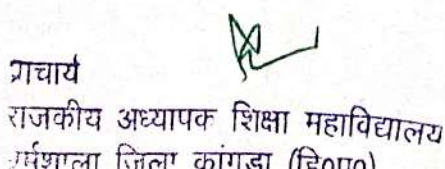 प्राचार्य
राजकीय अध्यापक शिक्षा महाविद्यालय
धर्मशाला जिला कांगड़ा (हि०प्र०)